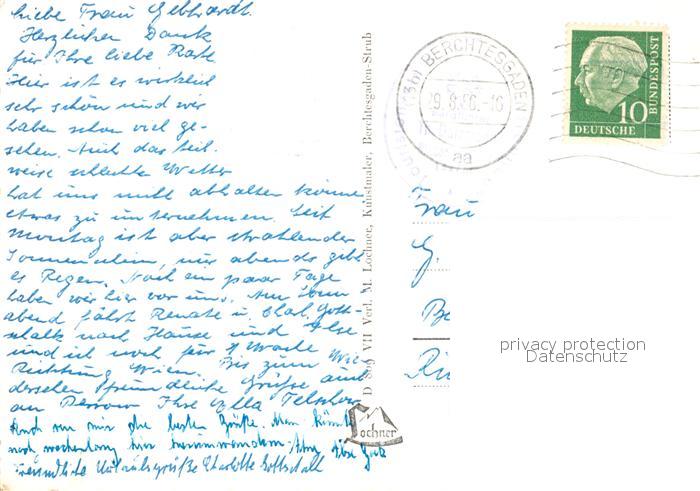 Liebe Frau Gebhardt.
Herzlichen Dank
für Ihre liebe Karte
Hier ist es wirklich
sehr schön und wir
haben schon viel ge-
sehen. Auch das teil-
weise schlechte Wetter
hat uns nicht abhalten können,
etwas zu unternehmen. Seit
Montag ist aber strahlender
Sonnenschein, nur abends gibt
es Regen. Noch ein paar Tage
haben wir hier vor uns. Am Sonn
abend fährt Renate u. Charl. Gott-
schalk nach Hause und Ilse
und ich noch für 1 Woche
Richtung Wien. Bis zum Wie-
dersehen freundliche Grüße auch
an Ihre Ella
Auch von mir die besten Grüße. Man könnte
noch wochenlang hier herumwandern. Ihre Ilse
Freundliche Urlaubsgrüße Charlotte Gottschalk
VII Verl. M. Lochner, Kunstmaler, Berchtesgaden-Strub
Lochner
(13b) BERCHTESGADEN
aa
10
DEUTSCHE
BUNDESPOST
Frau
G.
privacy protection
Datenschutz